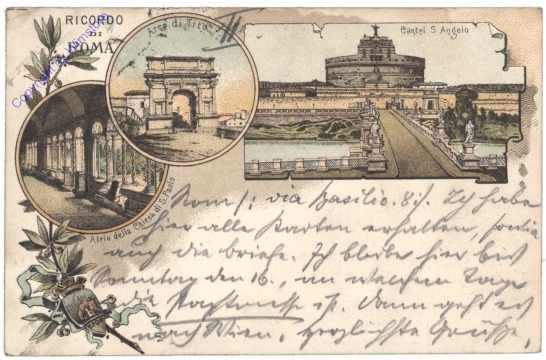 RICORDO
DI
ROMA
Arco di Tito
Castel S. Angelo
Atrio della Chiesa di S. Paolo
Rom, via Basilio 8. Ich habe
hier alle Karten erhalten,
auch die Briefe. Ich bleibe hier bis
Sonntag den 16., an welchem Tage
die ist. Dann geht es
nach Wien, herzlichste Grüße,